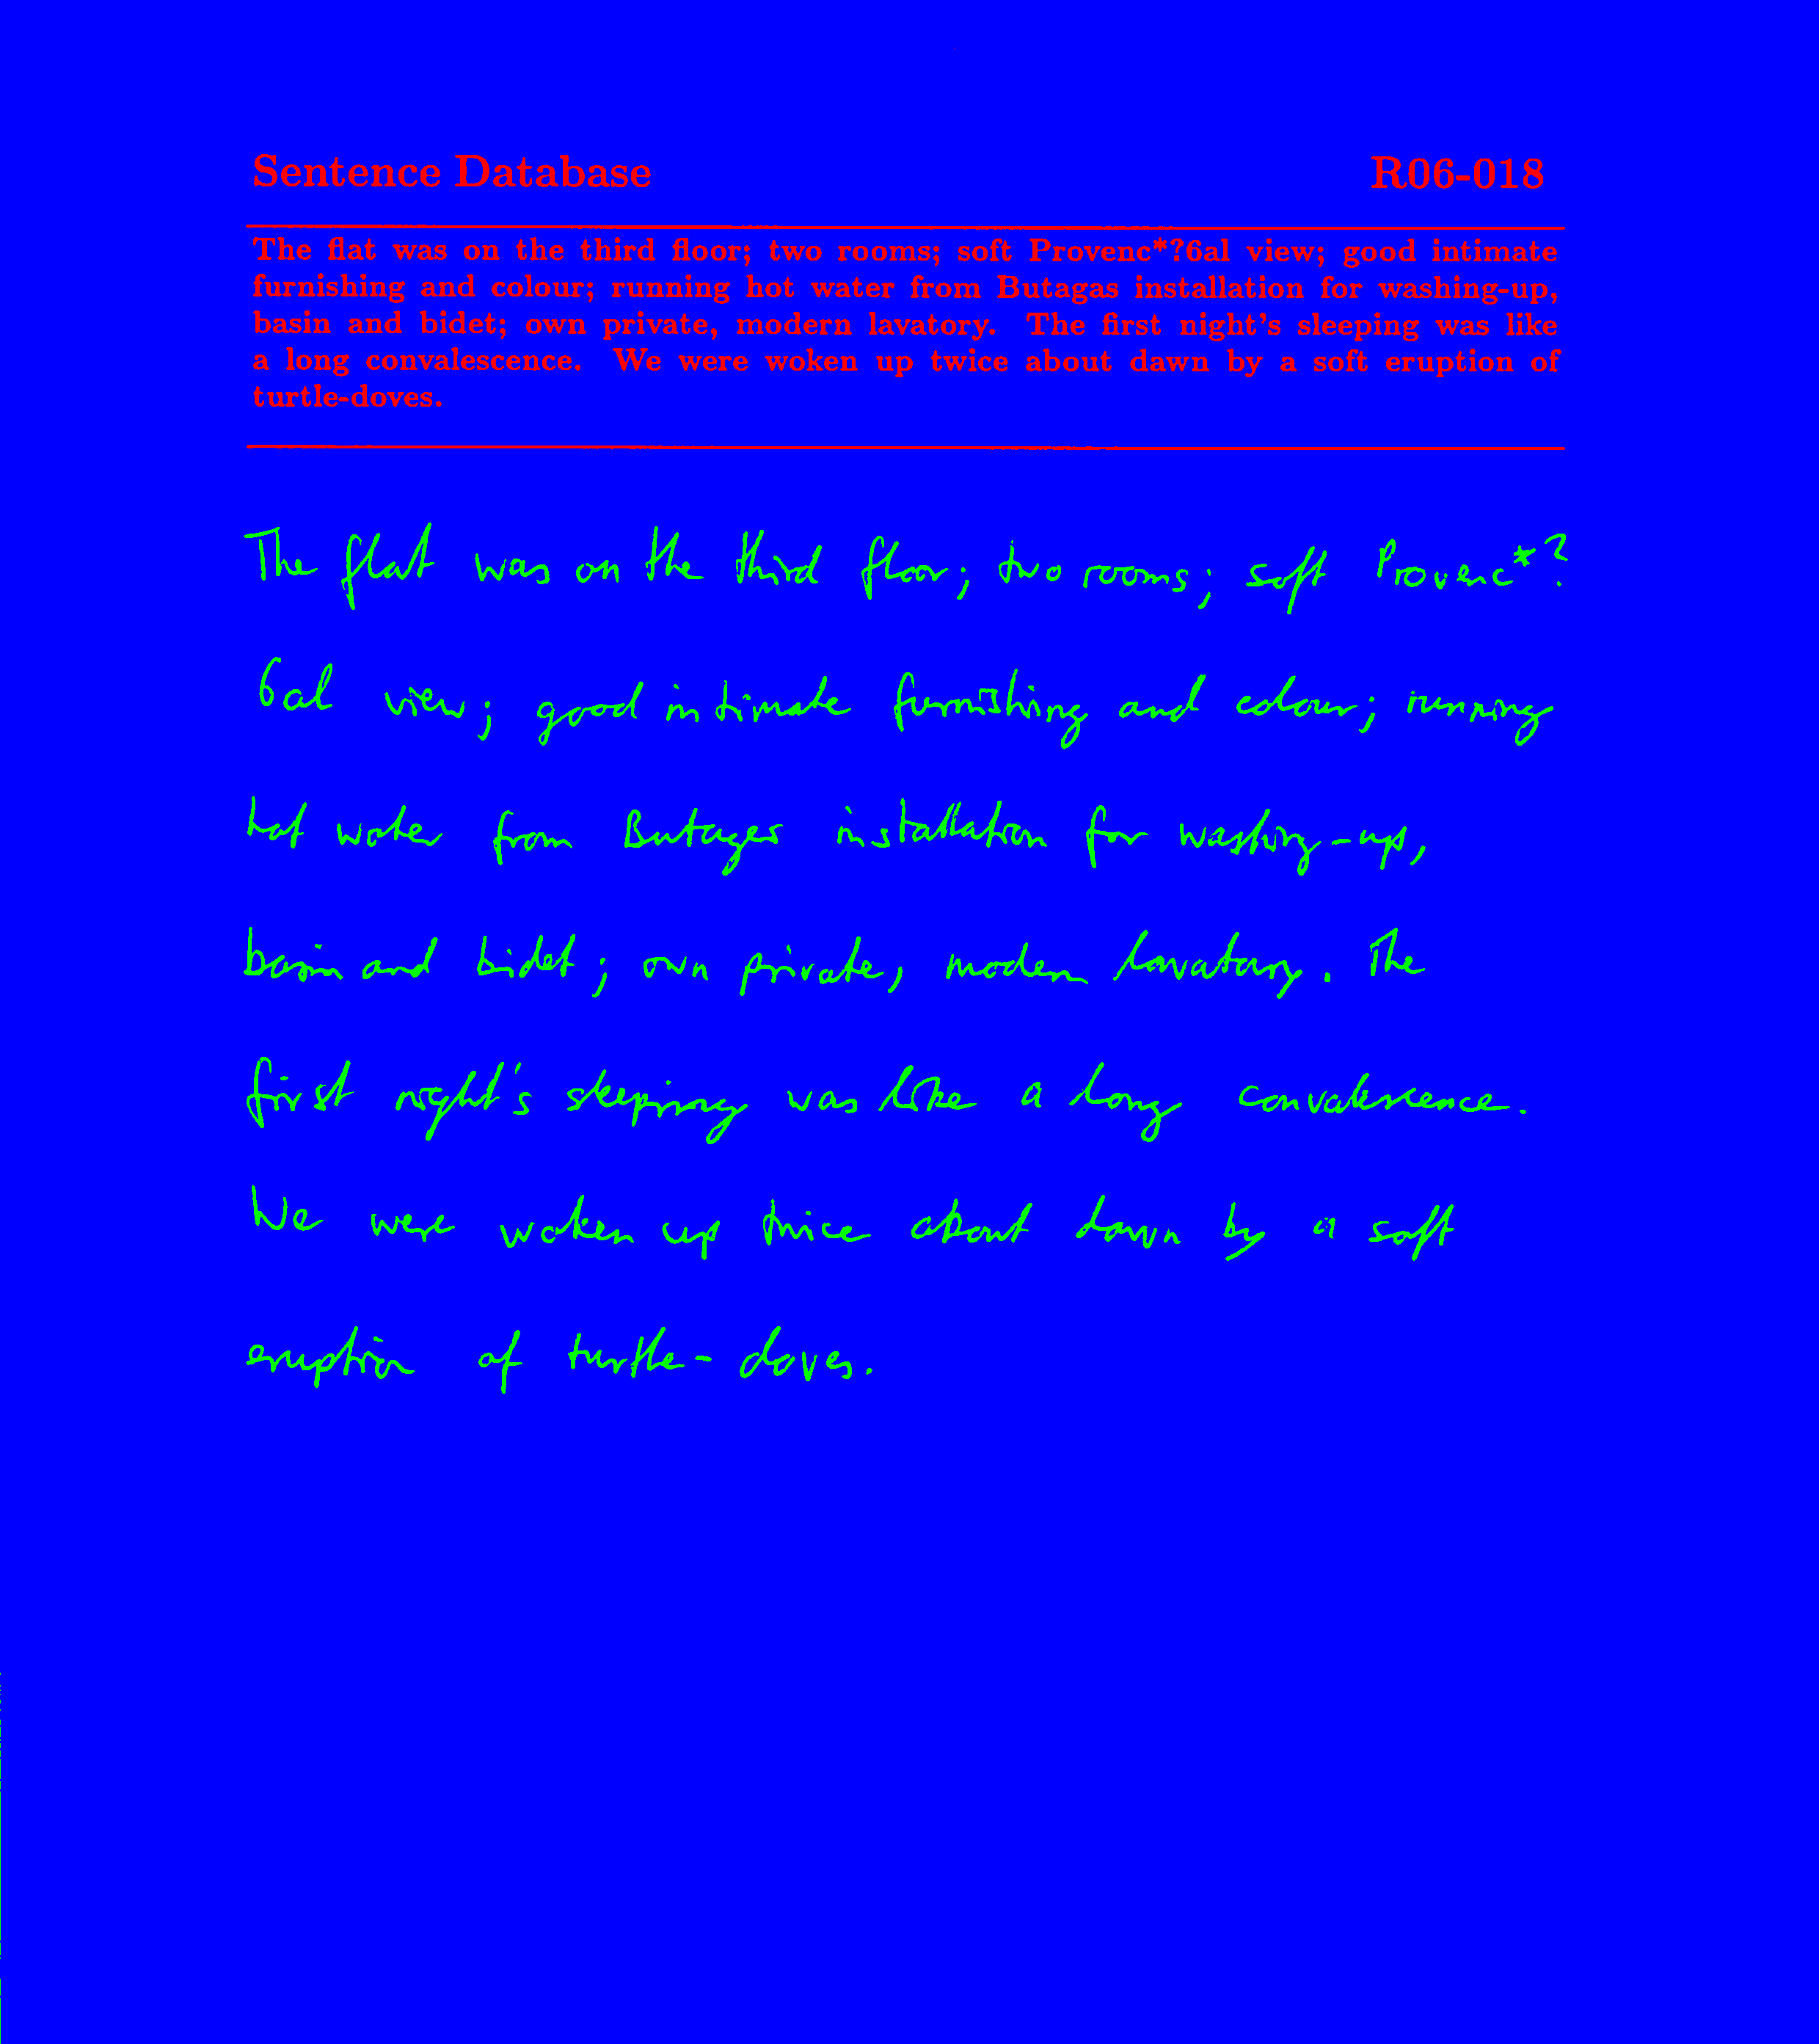 Sentence Database R06-018
The flat was on the third floor; two rooms; soft Provenc*?6al view; good intimate
furnishing and colour; running hot water from Butagas installation for washing-up,
basin and bidet; own private, modern lavatory. The first night's sleeping was like
a long convalescence. We were woken up twice about dawn by a soft eruption of
turtle-doves.
The flat was on the third floor; two rooms; soft Provenc*?
6al view; good intimate furnishing and colour; running
hot water from Butagas installation for washing-up,
basin and bidet; own private, modern lavatory. The
first night's sleeping was like a long convalescence.
We were woken up twice about dawn by a soft
eruption of turtle-doves.